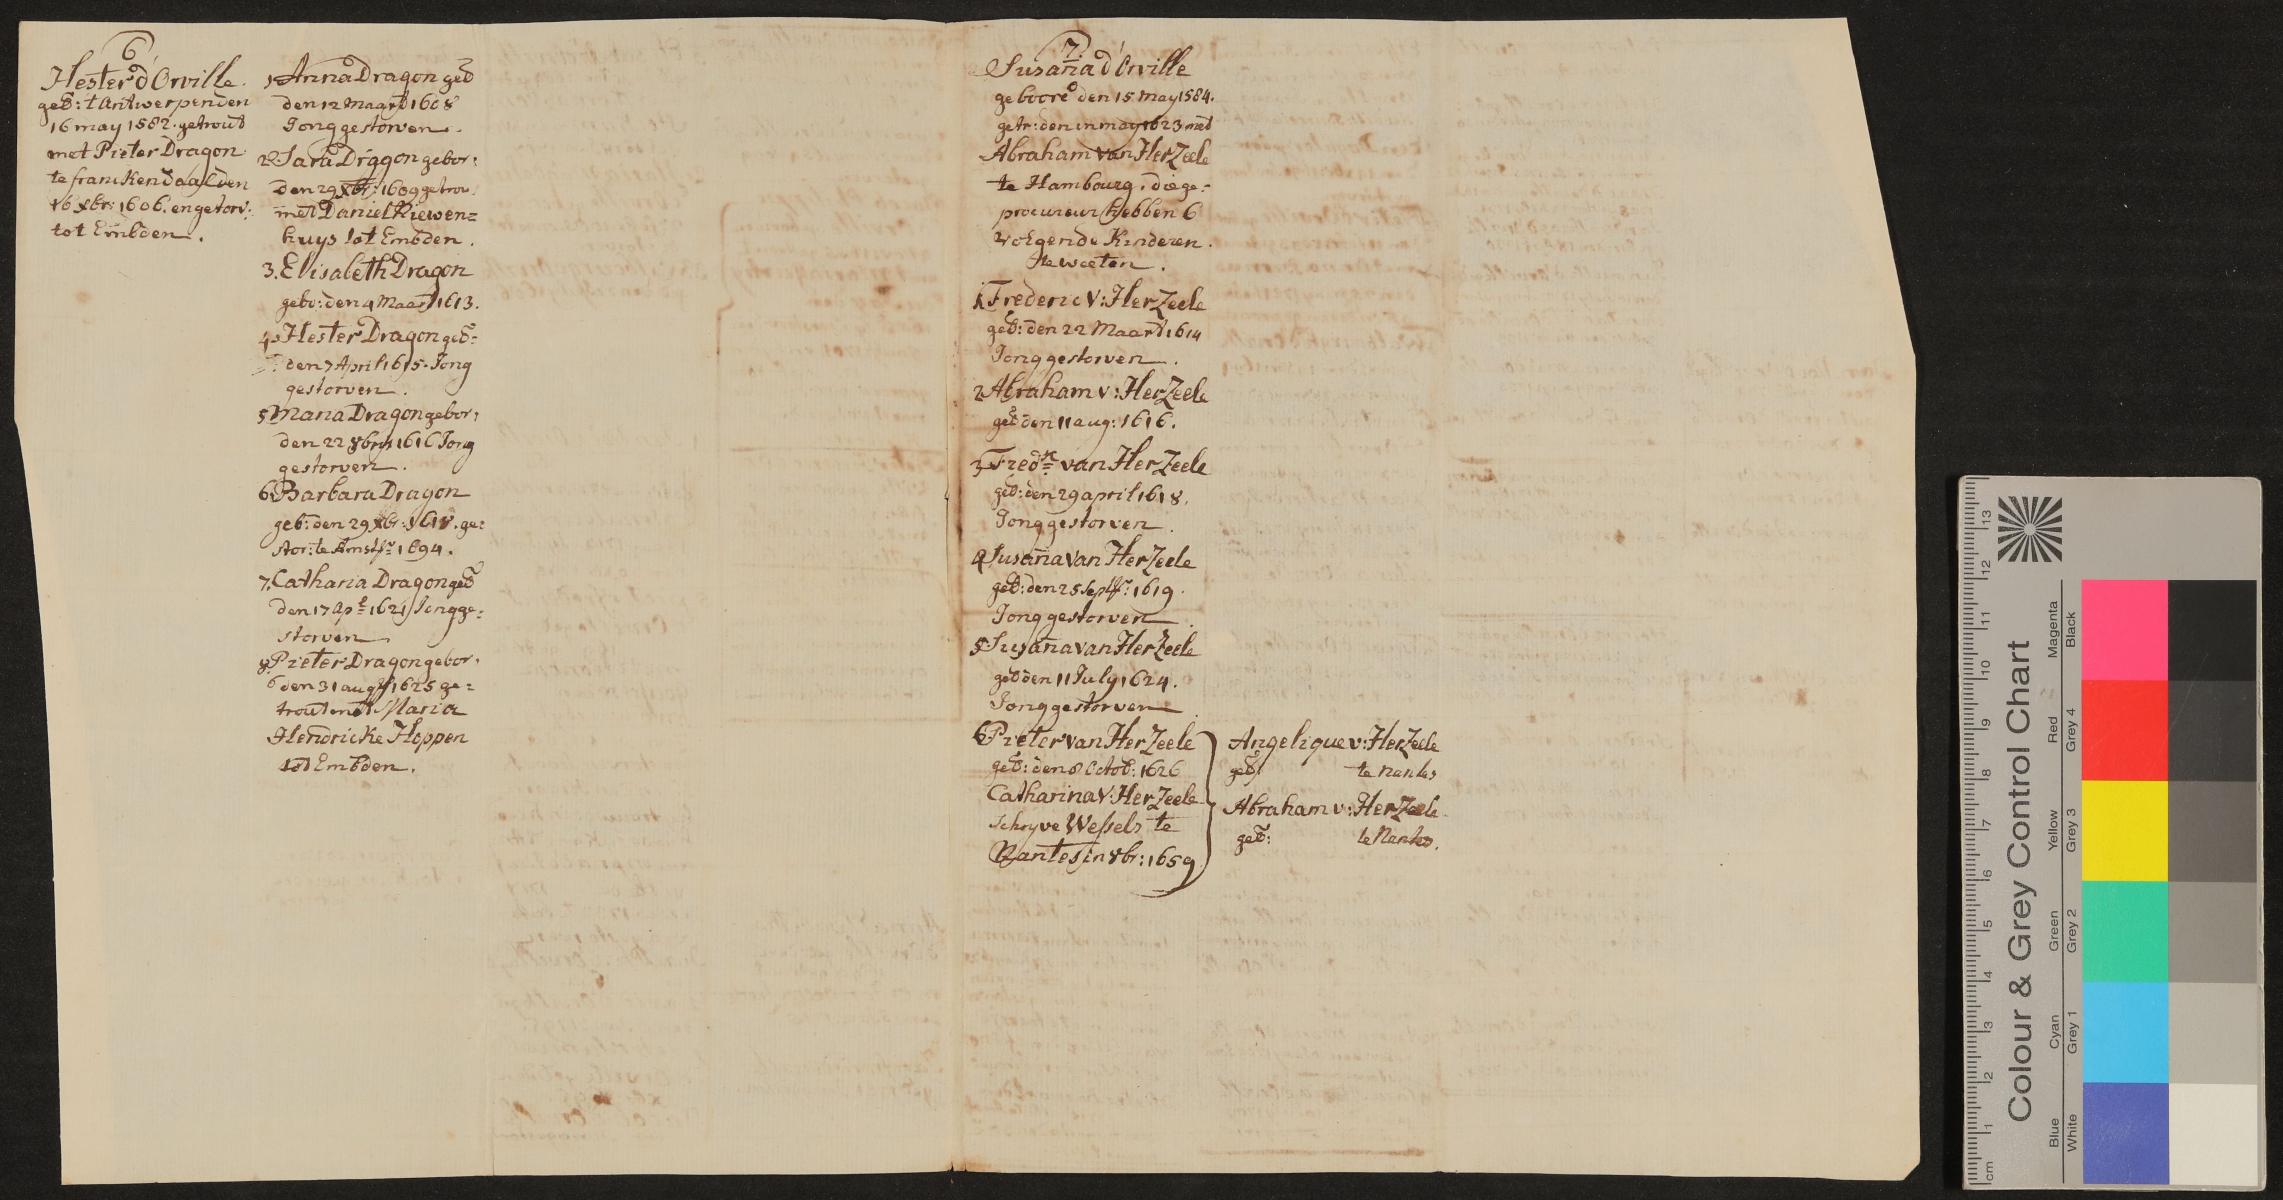 6
Hester d'Orville.
geb: t Antwerpen den
16 may 1582. getrout
met Pieter Dragon
te franckendaal den
16 xbr: 1606. en gestorv:
tot Embden.
1 Anna Dragon geb
den 12 Maart 1608
Jong gestorven.
2. Sara Dragon gebor:
den 29 xbr: 1609 getrou.
met Daniel Kiewen=
huys tot Embden.
3. Elisabeth Dragon
gebo: den 4 Maart 1613.
4. Hester Dragon geb=
den 7 April 1615. Jong
gestorven.
5 Maria Dragon gebor:
den 22 8bris 1616 Jong
gestorven.
6. Barbara Dragon
geb: den 29 xbr: 1618. ge=
stor: te Amst: 1694.
7. Catharia Dragon geb
den 17 ap: 1621 Jong ge=
storven
8. Pieter Dragon gebor.
den 31 aug 1625 ge=
trout met Maria
Hendricke Hoppen
tot Embden.
7.
Susaña d'Orville
geboore den 15 may 1584.
getr: den in may 1623 met
Abraham van HerZeele
te Hambourg. die ge=
procureur hebben 6
volgende Kinderen.
te weeten.
1 Frederic v: HerZeele
geb: den 22 Maart 1614
Jong gestorven.
2 Abraham v: HerZeele
geb den 11 aug: 1616.
3 Fredk van HerZeele
geb: den 29 april 1618.
Jong gestorven.
4 Susaña van HerZeele
geb: den 25 Sept: 1619.
Jong gestorven.
5. Susaña van HerZeele
geb den 11 July 1624.
Jong gestorven
6. Pieter van HerZeele
geb: den 8 Octob: 1626
Catharina v: HerZeele
schryve Wessels te
Nantes in 8br: 1659
Angelique v: HerZeele
geb: te Nantes
Abraham v: HerZeele
geb: te Nantes.
Colour & Grey Control Chart
Blue Cyan Green Yellow Red Magenta
White Grey 1 Grey 2 Grey 3 Grey 4 Black
cm 1 2 3 4 5 6 7 8 9 10 11 12 13